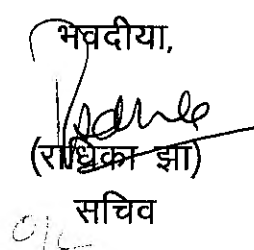 भवदीया,
(राधिका झा)
सचिव